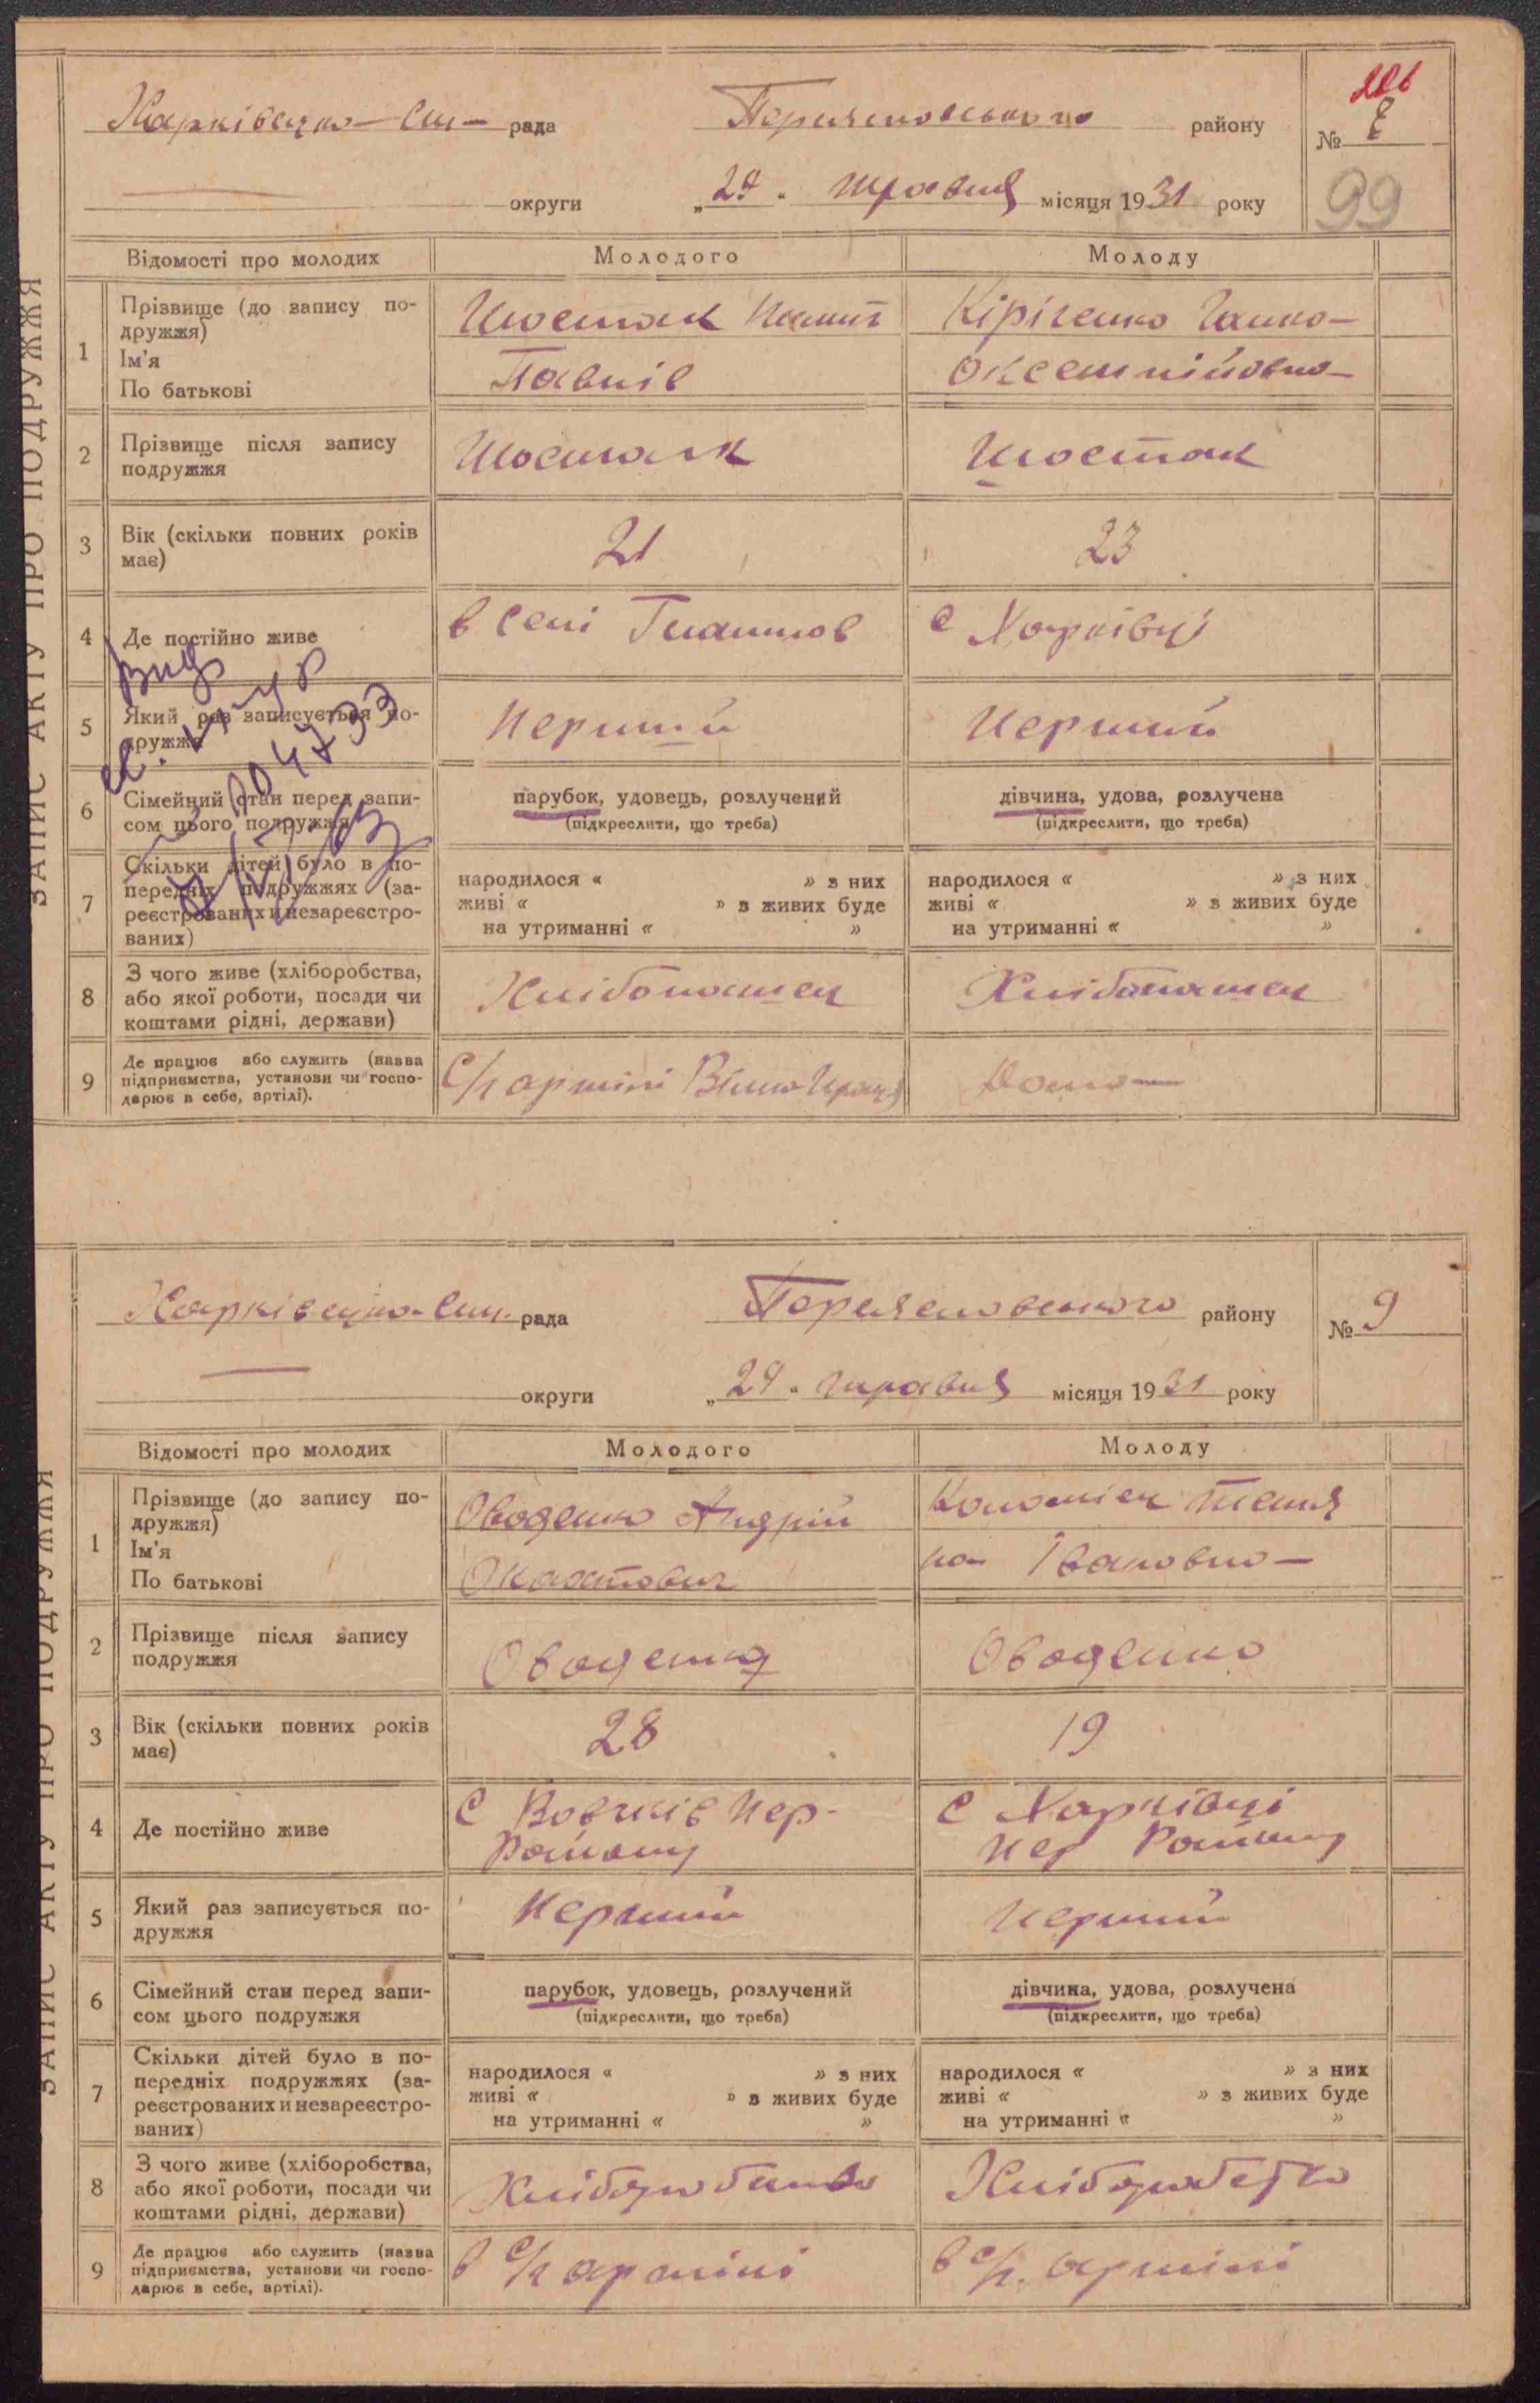 ЗАПИС АКТУ ПРО ПОДРУЖЖЯ
Харківецка Сіл рада Переяславського району № 8
99
округи „24" травня місяця 1931 року
Відомості про молодих Молодого Молоду
1 Прізвище (до запису подружжя) Ім'я По батькові
Шостак
Павлів
Кіріченко Ганна
Оксентійовна
2 Прізвище після запису
подружжя
Шостак Шостак
3 Вік (скільки повних років
має)
21 23
4 Де постійно живе
в селі с Харківці
5 Який раз записується по-
дружжя
Перший Перший
6 Сімейний стан перед запи-
сом цього подружжя
парубок, удовець, розлучений
(підкреслити, що треба)
дівчина, удова, розлучена
(підкреслити, що треба)
7 Скільки дітей було в по-
передніх подружжях (за-
реєстрованих и незареєстро-
ваних)
народилося « » з них
живі « » з живих буде
на утриманні « »
народилося « » з них
живі « » з живих буде
на утриманні « »
8 З чого живе (хліборобства,
або якої роботи, посади чи
коштами рідні, держави)
Хлібопашец Хлібопашец
9 Де працює або служить (назва
підприємства, установи чи госпо-
дарює в себе, артілі).
С/г артілі Вільна Праця Дома
ЗАПИС АКТУ ПРО ПОДРУЖЖЯ
Харківецка Сіл. рада Переяславського району № 9
округи „24" травня місяця 1931 року
Відомості про молодих Молодого Молоду
1 Прізвище (до запису по-
дружжя)
Ім'я
По батькові
Оводенко Андрій
Коломіец Тетяя
на Івановна
2 Прізвище після запису
подружжя
Оводенко Оводенко
3 Вік (скільки повних років
має)
28 19
4 Де постійно живе
С Вовчків Пер.
Району
с Харківці
Пер Району
5 Який раз записується по-
дружжя
Перший Перший
6 Сімейний стан перед запи-
сом цього подружжя
парубок, удовець, розлучений
(підкреслити, що треба)
дівчина, удова, розлучена
(підкреслити, що треба)
7 Скільки дітей було в по-
передніх подружжях (за-
реєстрованих и незареєстро-
ваних)
народилося « » з них
живі « » з живих буде
на утриманні « »
народилося « » з них
живі « » з живих буде
на утриманні « »
8 З чого живе (хліборобства,
або якої роботи, посади чи
коштами рідні, держави)
9 Де працює або служить (назва
підприємства, установи чи госпо-
дарює в себе, артілі).
в с/г артілі в с/г. артілі